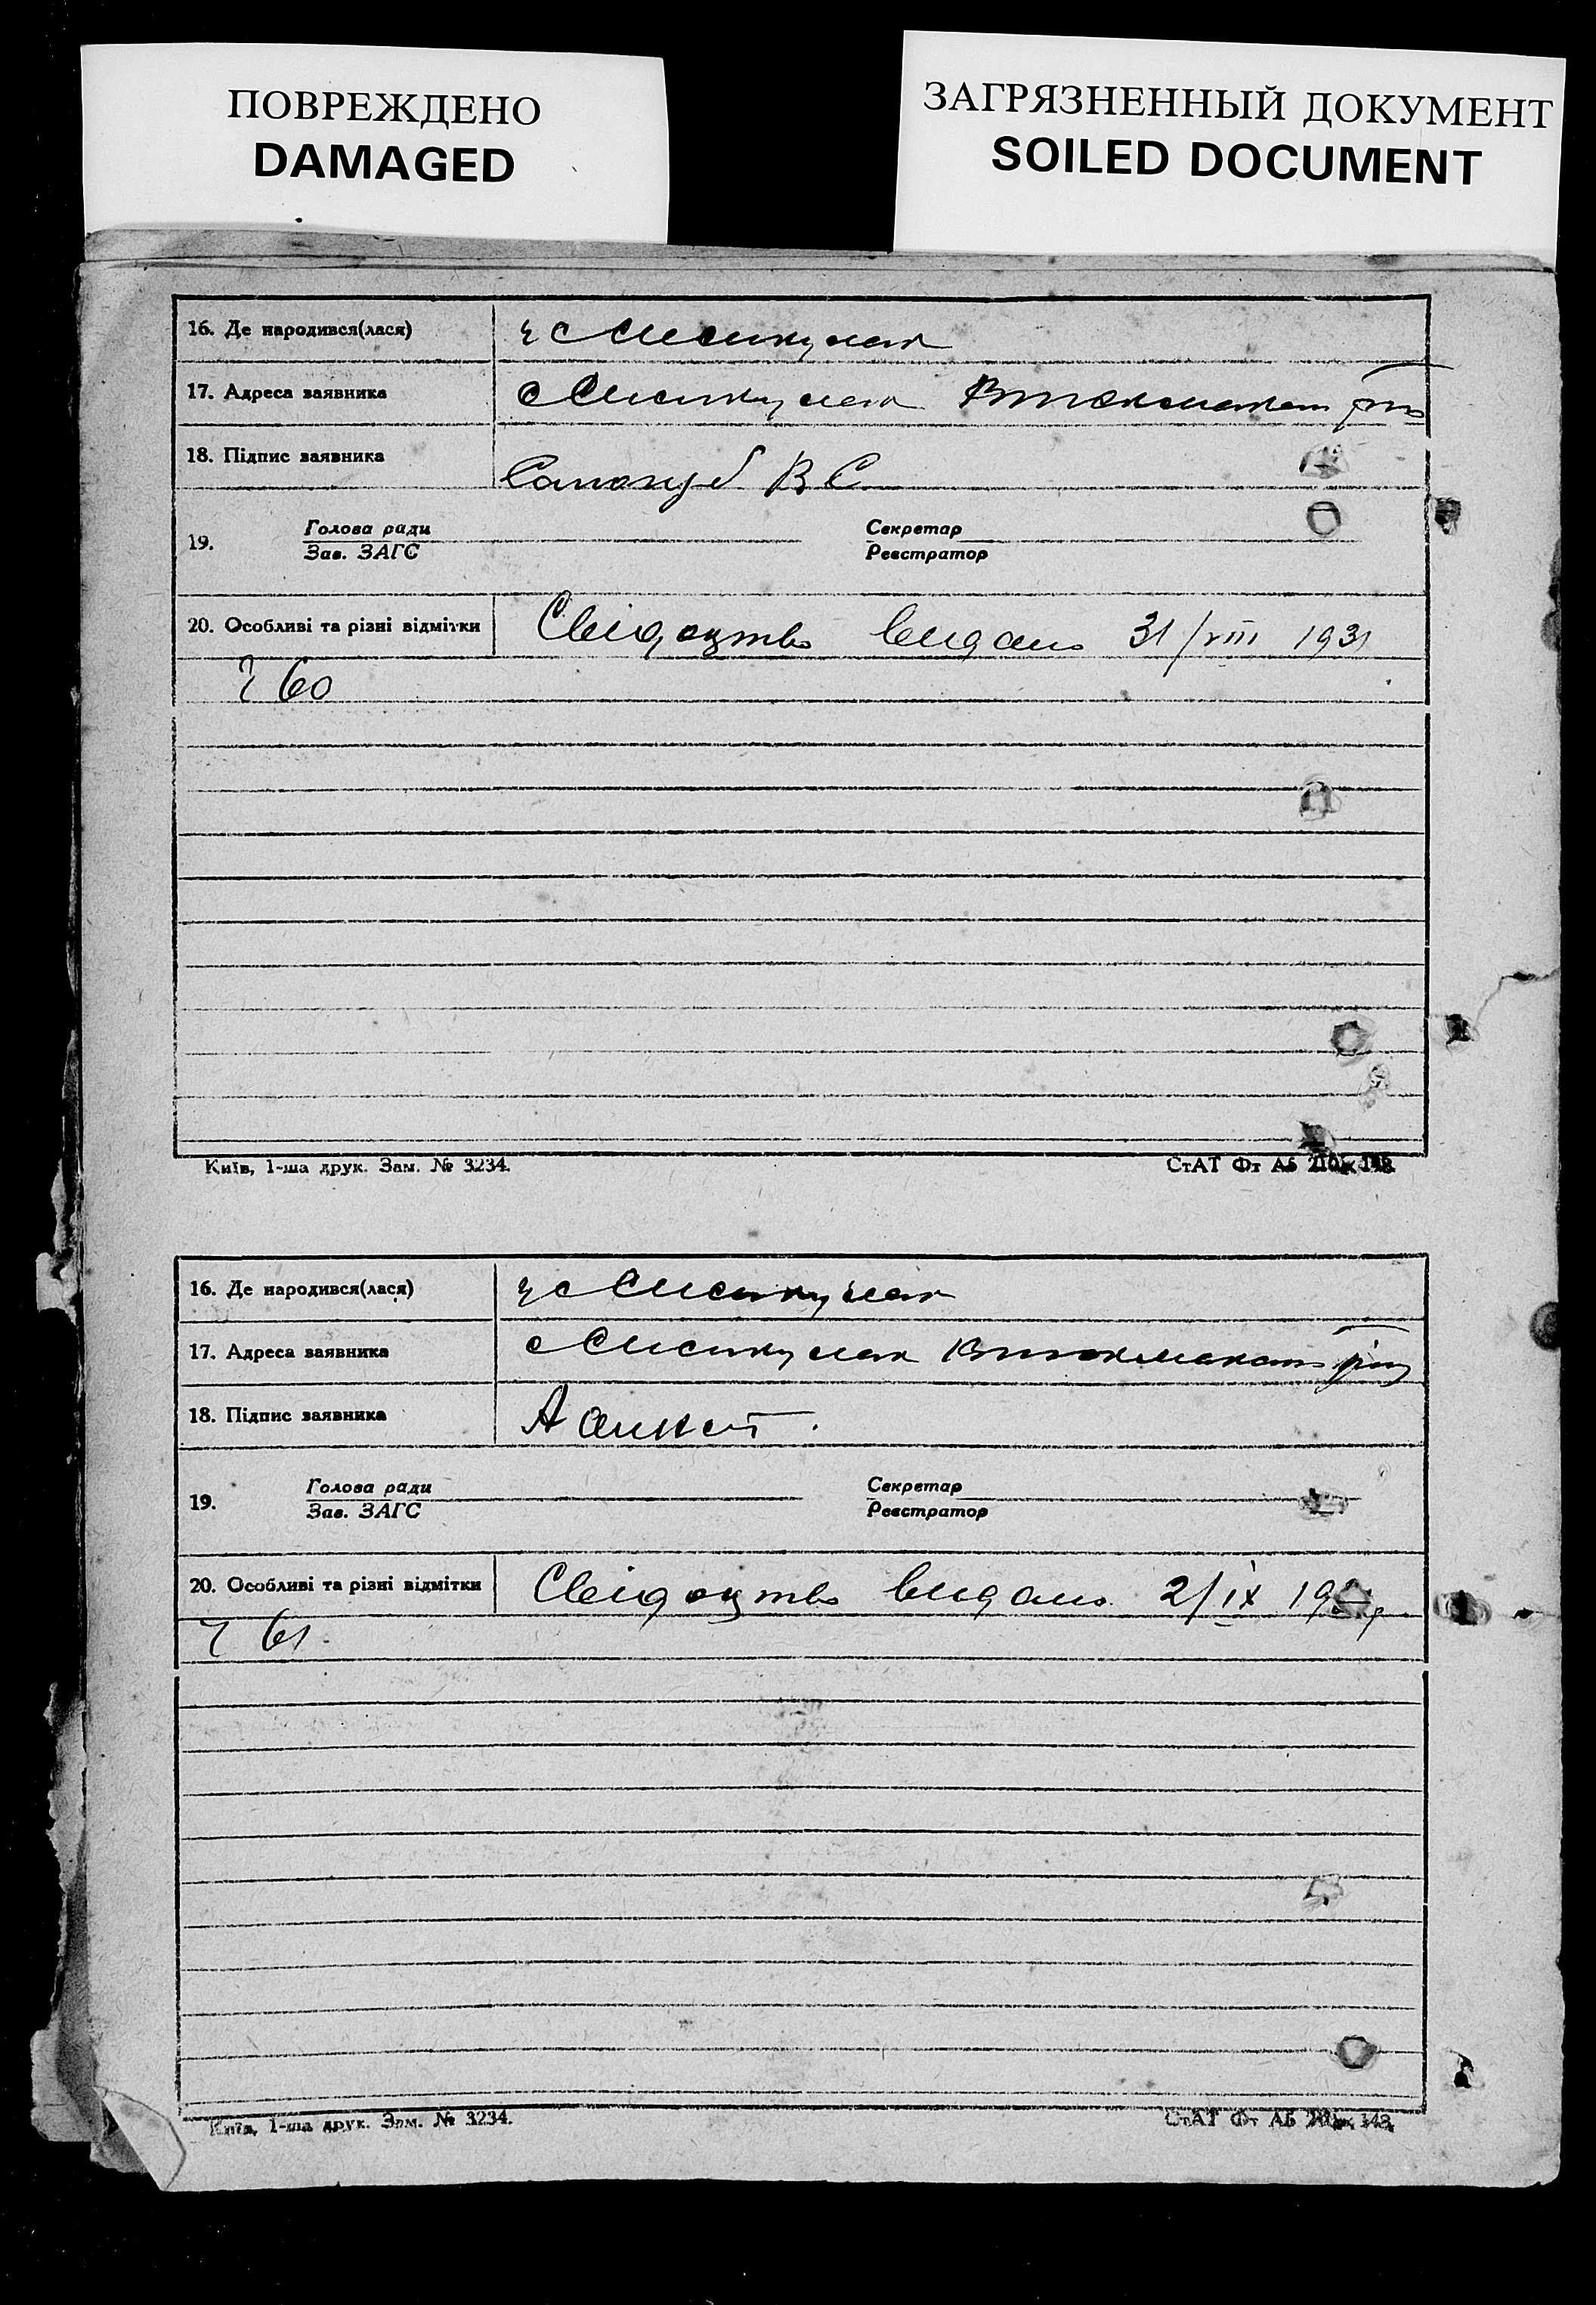 ПОВРЕЖДЕНО
DAMAGED
ЗАГРЯЗНЕННЫЙ ДОКУМЕНТ
SOILED DOCUMENT
16. Де народився(лася) с
17. Адреса заявника с
18. Підпис заявника В С
19. Голова ради Секретар
Зав. ЗАГС Реєстратор
20. Особливі та різні відмітки Свідоцтво видано 31/VIII 1931
60
Київ, 1-ша друк. Зам. № 3234. СтАТ Фт А5
16. Де народився(лася) с
17. Адреса заявника с
18. Підпис заявника А
19. Голова ради Секретар
Зав. ЗАГС Реєстратор
20. Особливі та різні відмітки Свідоцтво видано 2/IX
61
Київ, 1-ша друк. Зам. № 3234. СтАТ Фт А5 148